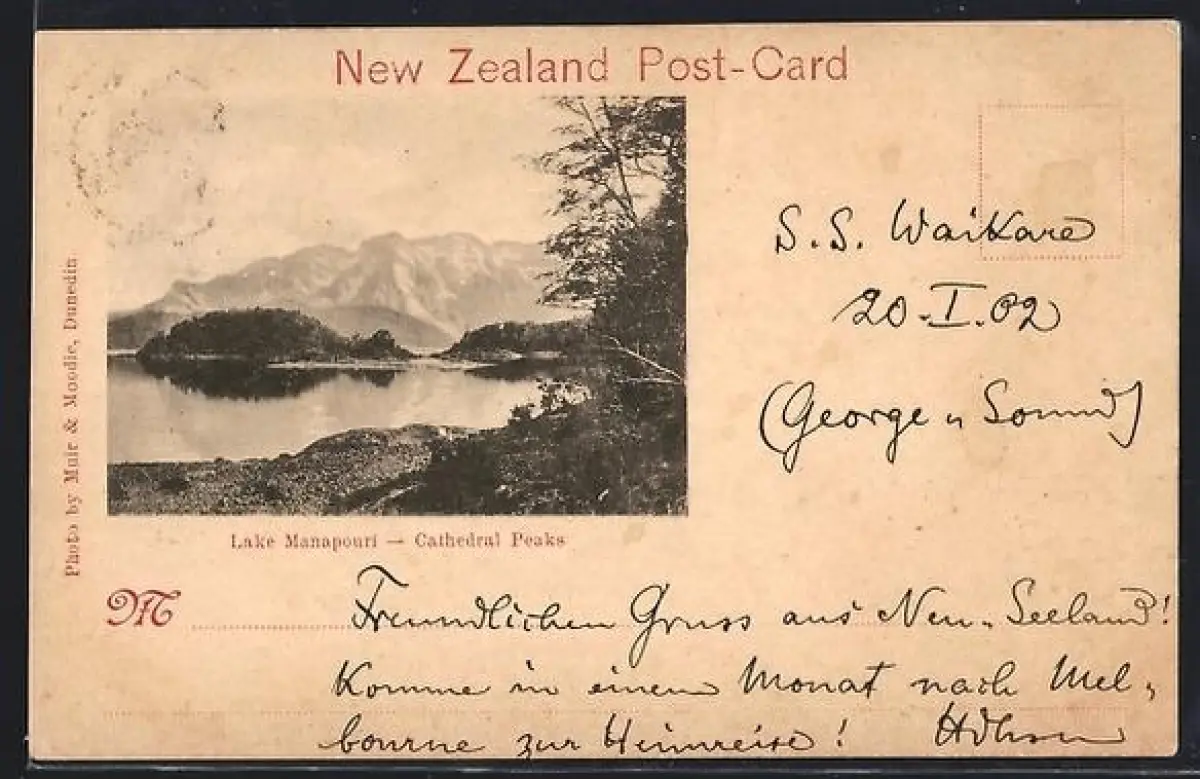 New Zealand Post-Card
S.S. Waikare
20.I.02
(George „ Sound)
Photo by Muir & Moodie, Dunedin
Lake Manapouri — Cathedral Peaks
M
Freundlichen Gruss aus Neu-Seeland!
Komme in einem Monat nach Mel-
bourne zur Heimreise!